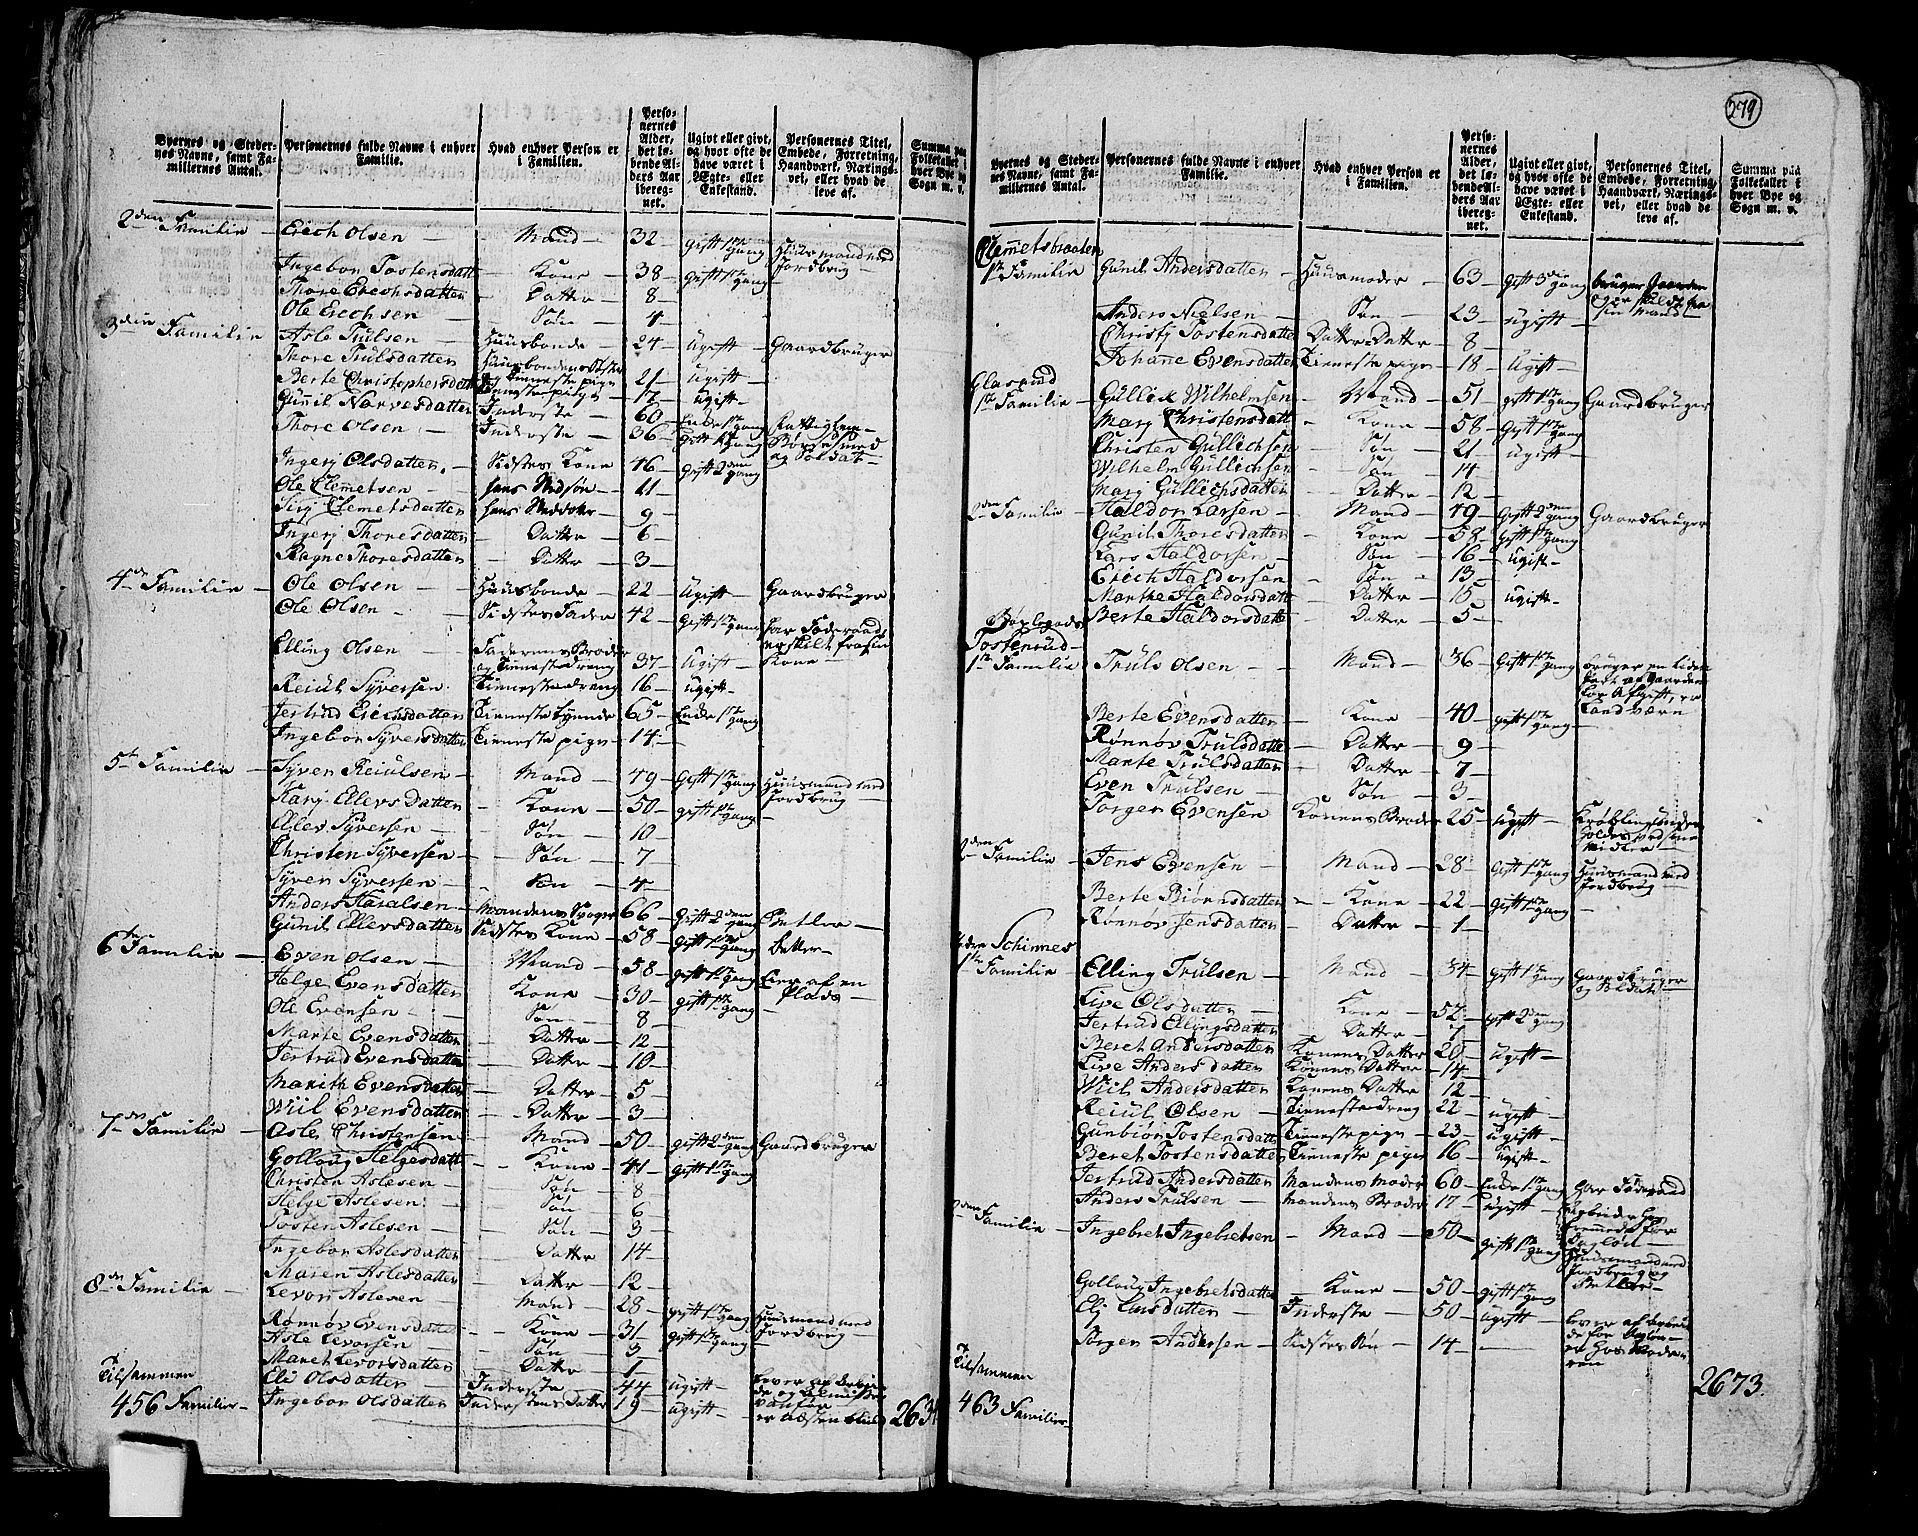 279
Byernes og Stedernes Navne, samt Familiernes Antal. | Personernes fulde Navne i enhver Familie. | Hvad enhver Person er i Familien. | Personernes Alder, det løbende Alders Aar iberegnet. | Ugivt eller givt, og hvor ofte de have været i Ægte- eller Enkestand. | Personernes Titel, Embede, Forretning, Haandværk, Næringsvei, eller hvad de leve af. | Summa paa Folketallet i hver Bye og Sogn m. v.
2den Familie — Erich Olsen — Mand — 32 — gift 1ste gang Huusmand med Jordbrug —
Ingebor Tostensdatt — Kone — 38 — gift 1ste gang
Thore Erichsdatten — Datter — 8 —
Ole Erichsen — Søn — 4 —
3die Familie — Asle Trulsen — Huusbonde — 24 — Ugift — Gaardbruger
Thore Trulsdatten — Huusbondens Søster og Tieneste pige 21 — Ugift —
Berte Christophersdatt Tieneste pige — 17 — ugift —
Gunnil Narvesdatten Inderste — 60 — Enke 1ste gang
Thore Olsen — Inderste — 36 — gift 1ste gang og Soldat —
Ingerj Olsdatten — Sidstes Kone — 46 — gift 2den gang
Ole Clemetsen — hans Stedsøn — 21 —
Sirj Clemetsdatten hans Steddatter — 9 —
Ingerj Thoresdatten — Datter — 6 —
Ragne Thoresdatten — Datter — 3 —
4de Familie — Ole Olsen — Huusbonde — 22 — Ugift — Gaardbruger
Ole Olsen — Sidstes Fader — 42 — Gift 1ste gang har Føderaad, er skilt fra sin Kone —
Elling Olsen — Faderens Broder og Tienestedreng 37 — Ugift —
Reiul Syversen Tienestedreng 16 — ugift —
Jertrud Erichsdatten Tieneste 65 — Enke 1ste gang
Ingebor Syversdatten Tieneste pige — 14 —
5te Familie — Syver Reiulsen — Mand — 49 — Gift 1ste gang Huusmand med Jordbrug
Karj Ellevsdatten — Kone — 50 — gift 1ste gang —
Ellev Syversen — Søn — 10 —
Christen Syversen — Søn — 7 —
Syver Syversen — Søn — 4 —
Anders Haralsen — Mandens Svoger 66 — Gift 2den gang Betler —
Gunil Ellevsdatten Sidstes Kone — 58 — gift 1ste gang Betler —
6te Familie — Even Olsen — Mand — 58 — gift 1ste gang Lever af en Plads —
Helge Evensdatten — Kone — 30 — gift 1ste gang
Ole Evensen — Søn — 8 —
Marte Evensdatten — Datter — 12 —
Jertrud Evensdatten — Datter — 10 —
Marith Evensdatten — Datter — 5 —
Wiil Evensdatten — Datter — 3 —
7de Familie — Asle Christensen — Mand — 50 — gift 2den gang Gaardbruger
Gollaug Helgesdatt — Kone — 41 — gift 1ste gang
Christen Aslesen — Søn — 8
Helge Aslesen — Søn — 6
Tosten Aslesen — Søn — 3
Ingebor Aslesdatten — Datter — 14 —
Maren Aslesdatten — Datter — 12 —
8de Familie — Levor Aslesen — Mand — 28 — gift 1ste gang Huusmand med Jordbrug —
Rønnøv Evensdatte — Kone — 31 — gift 1ste gang
Asle Levorsen — Søn — 3
Maret Levorsdatten — Datter — 1
Eli Olsdatten — Inderste — 44 — ugift —
Ingebor Olsdatten — Inderstens Datter 19 — ugift —
Tilsammen
456 Familier —
Byernes og Stedernes Navne, samt Familiernes Antal. | Personernes fulde Navne i enhver Familie. | Hvad enhver Person er i Familien. | Personernes Alder, det løbende Alders Aar iberegnet. | Ugivt eller givt, og hvor ofte de have været i Ægte- eller Enkestand. | Personernes Titel, Embede, Forretning, Haandværk, Næringsvei, eller hvad de leve af. | Summa paa Folketallet i hver Bye og Sogn m. v.
Clemetsbraaten
1ste Familie — Gunil Andersdatten — Huusmoder — 63 — Gift 3die gang bruger Gaarden er skildt fra sin Mand —
Anders Nielsen — Søn — 23 — ugift —
Christj Tostensdatten Datter Datter — 8 —
Johane Evensdatten Tieneste pige — 18 — Ugift —
Glasrud
1ste Familie — Gullik Wilhelmsen — Mand — 51 — gift 1ste gang Gaardbruger
Marj Christensdatt — Kone — 58 — Gift 1ste gang
Christen Gullichsen — Søn — 21 — ugift —
Wilhelm Gullichsen — Søn — 14 —
Marj Gullichsdatten — Datter — 12 —
2den Familie — Haldor Larsen — Mand — 49 — Gift 2den gang Gaardbruger
Gunil Thoresdatten — Kone — 58 — Gift 1ste gang
Lars Haldorsen — Søn — 16 — ugift —
Erich Haldorsen — Søn — 13 —
Marthe Haldorsdatt — Datter — 15 — ugift —
Berte Haldorsdatte — Datter — 5 —
Tostenrud
1ste Familie — Truls Olsen — Mand — 36 — Gift 1ste gang bruger en liden Part af Gaarden for Afgift, er Landværn
Berte Evensdatten — Kone — 40 — gift 1ste gang —
Rønnøv Trulsdatte — Datter — 9 —
Marte Trulsdatten — Datter — 7 —
Even Trulsen — Søn — 3 —
Torger Evensen — Konens Broder 25 — ugift — Krøbling
2den Familie — Jens Evensen — Mand — 28 — Gift 1ste gang Huusmand med Jordbrug —
Berte Biørnsdatten — Kone — 22 — gift 1ste gang —
Rønnøv Jensdatten — Datter — 1 —
Schinnes
1ste Familie — Elling Trulsen — Mand — 34 — gift 1ste gang Gaardbruger og Soldat —
Live Olsdatten — Kone — 52 — gift 2den gang
Jertrud Ellingsdatten — Datter — 7
Beret Andersdatten Konens Datter 20 — ugift —
Live Andersdatten — Konens Datter — 14 —
Wiil Andersdatten Konens Datter 12 —
Reiul Olsen — Tienestedreng 22 — ugift —
Gunbiør Tostensdatt Tieneste pige — 23 — ugift —
Beret Tostensdatten Tieneste pige 16 — ugift —
Jertrud Andersdatten Mandens Moder 60 — Enke 1ste gang har Føderaad
Anders Trulsen — Mandens Broder 17 — ugift — arbeider hos fremmede for Dagløn —
2den Familie — Ingebret Ingebretsen — Mand — 50 — gift 1ste gang Huusmand med Jordbrug og Betler —
Gollaug Ingebretsdatte — Kone — 50 — gift 1ste gang
Elj Larsdatten — Inderste — 50 — ugift — lever af
Torger Andersen — Sidstes Søn — 14 — er hos Moderen
Tilsammen
463 Familier
2673.